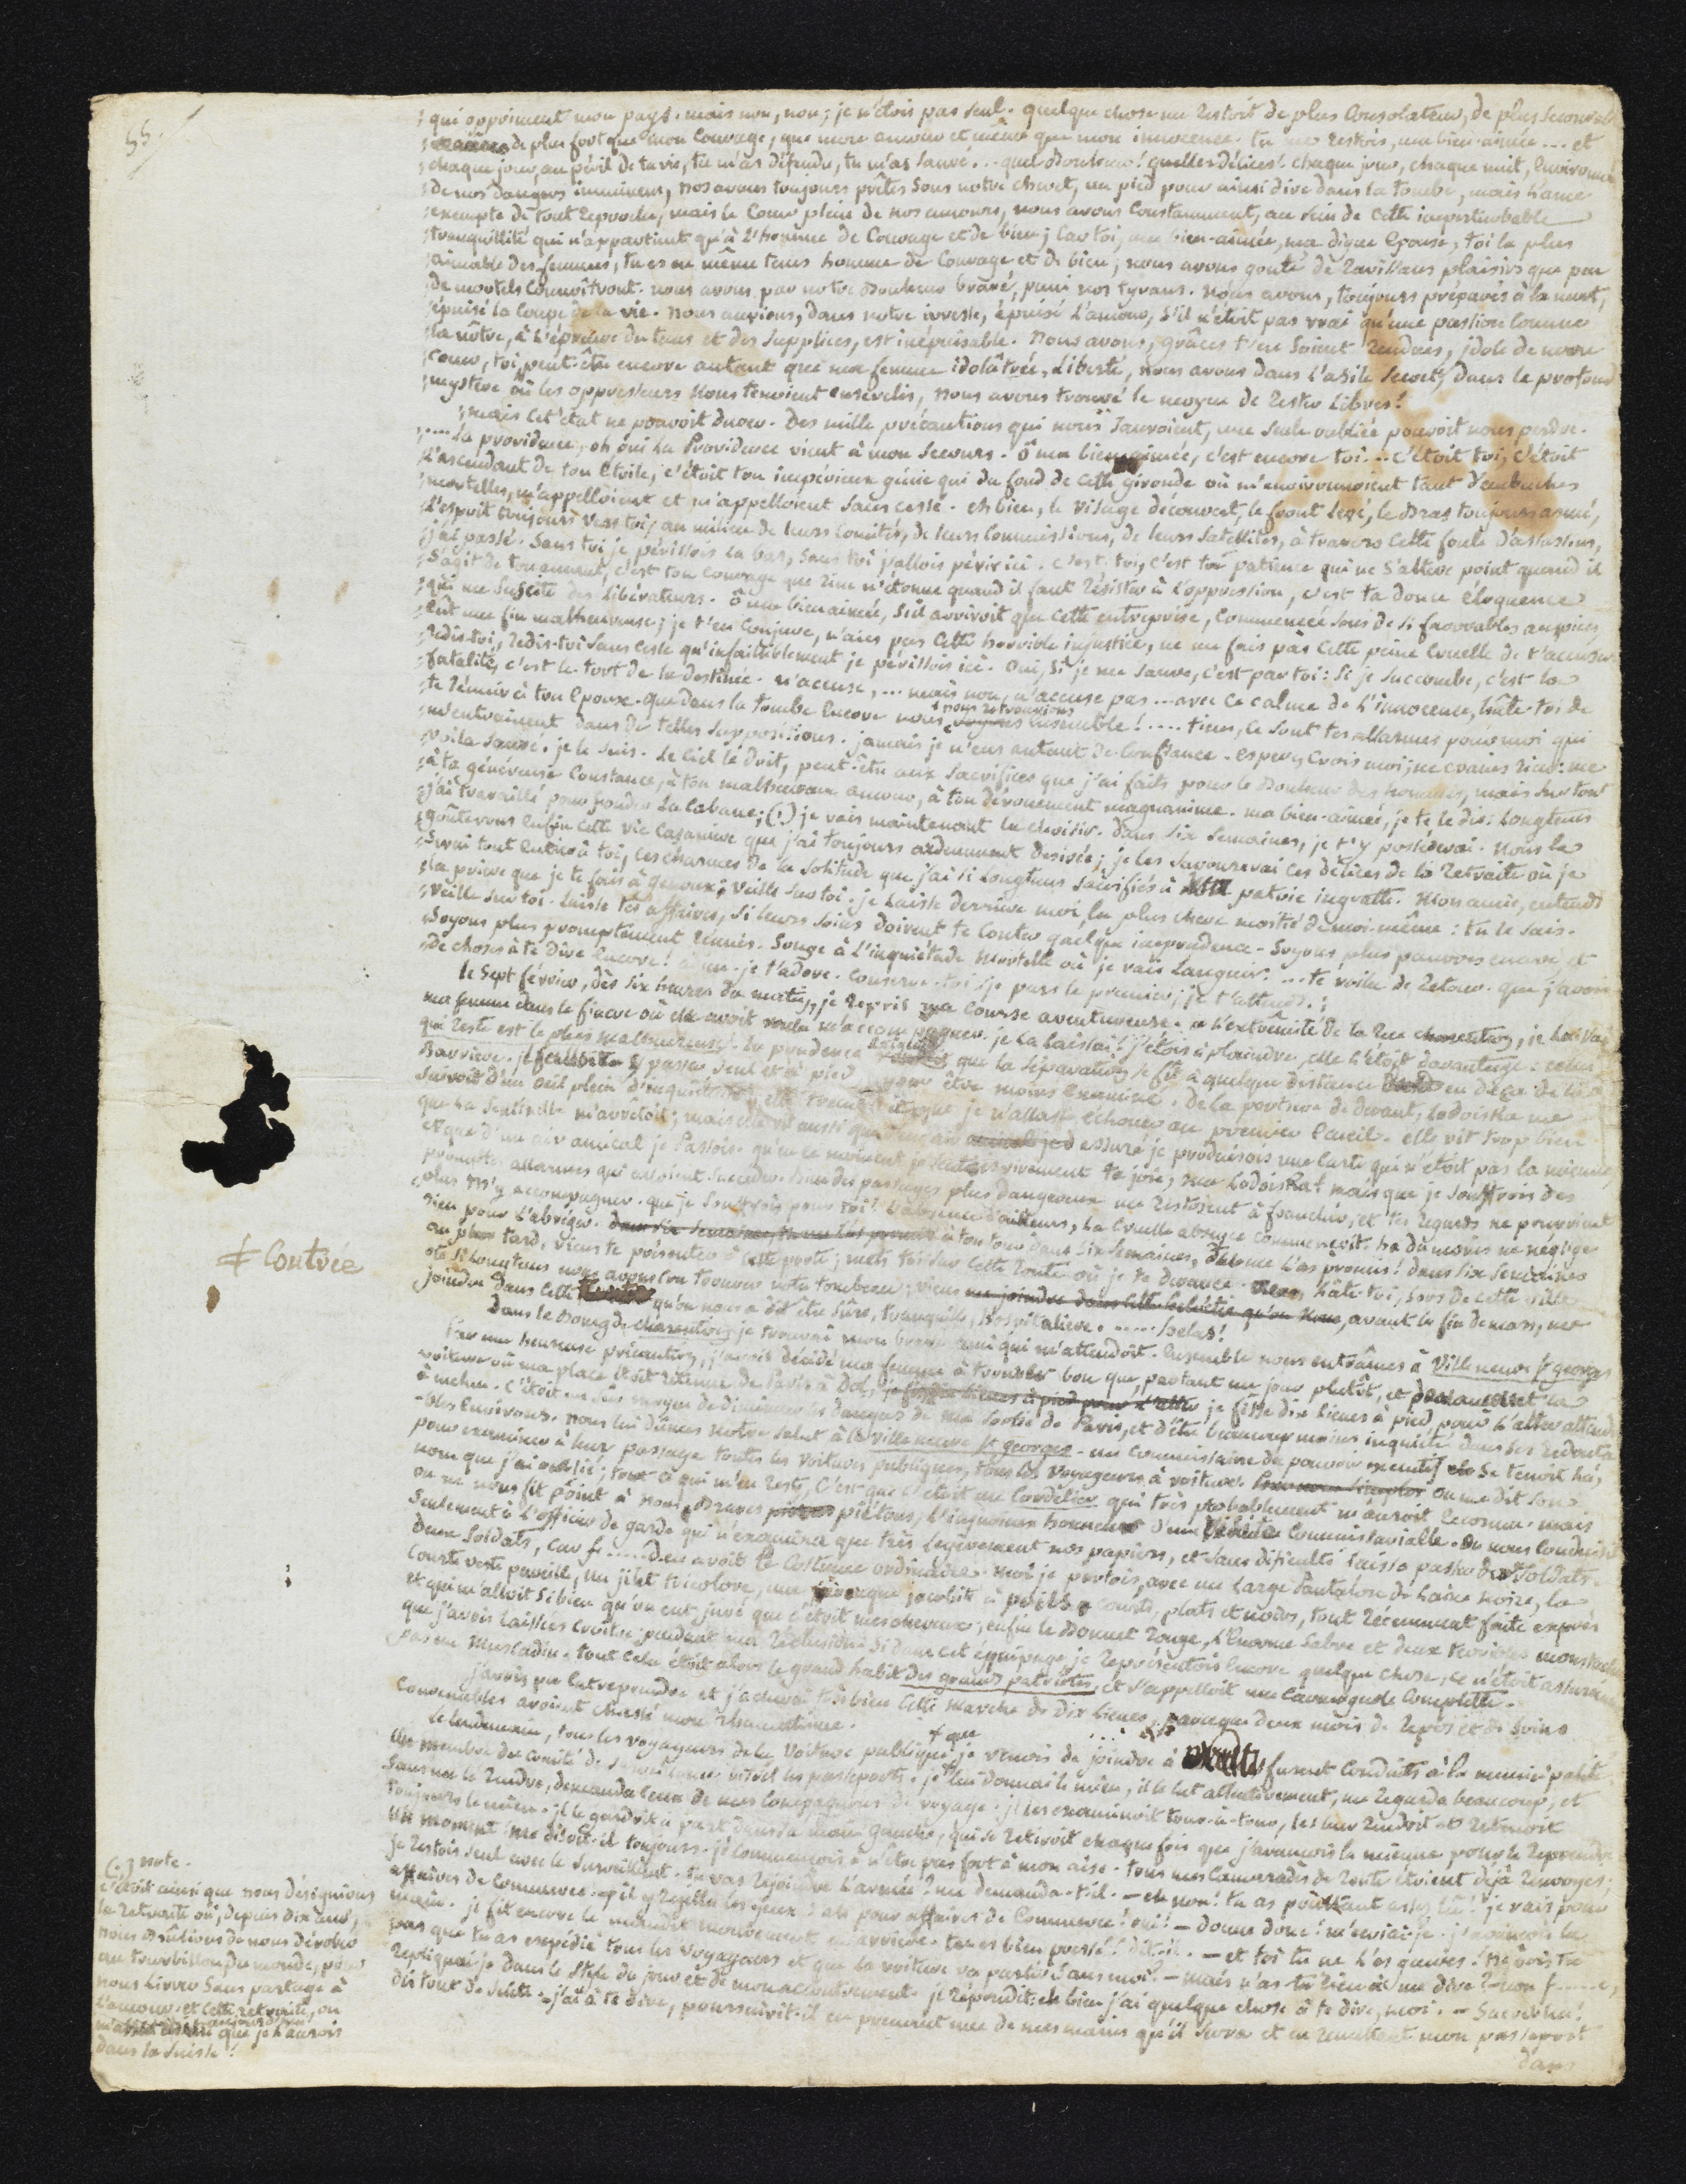 55/
qui oppriment mon pays. mais non, non; je n'étois pas seul. quelque chose me restoit de plus consolateur, de plus
de plus fort que mon courage, que mon amour et même que mon innocence. tu me restois, ma bien-aimée ... et
chaque jour, au péril de ta vie, tu m'as défendu, tu m'as sauvé ... quel bonheur! quelles délices! chaque jour, chaque nuit, environnés
de nos dangers imminens, nos armes toujours prêtes sous notre chevet, un pied pour ainsi dire dans la tombe, mais l'ame
exempte de tout reproche, mais le coeur plein de nos amours, nous avons constamment, au sein de cette imperturbable
tranquillité qui n'appartient qu'à l'homme de courage et de bien; car toi, ma bien-aimée, ma digne épouse, toi la plus
aimable des femmes, tu es en même tems homme de courage et de bien; nous avons gouté de ravissans plaisirs que peu
de mortels connoîtront. nous avons par notre bonheur bravé, puni nos tyrans. nous avons, toujours préparés à la mort,
épuisé la coupe de la vie. nous aurions, dans notre ivresse, épuisé l'amour, s'il n'étoit pas vrai qu'une passion comme
la nôtre, à l'épreuve du tems et des supplices, est inépuisable. Nous avons, grâces t'en soient rendues, idole de mon
coeur, toi, peut-être encore autant que ma femme idolâtrée, Liberté, nous avons dans l'asile secret, dans le profond
mystère où les oppresseurs nous tenoient ensevelis, nous avons trouvé le moyen de rester libres!
mais cet état ne pouvoit durer. Des mille précautions qui nous sauvoient, une seule oubliée pouvoit nous perdre.
.... La providence, oh oui la Providence vient à mon secours. ô ma bien aimée, c'est encore toi ... c'étoit toi, c'étoit
l'ascendant de ton étoile, c'étoit ton impérieux génie qui du fond de cette gironde où m'environnoient tant d'embuches
mortelles, m'appelloient et m'appelloient sans cesse. eh bien, le visage découvert, le front levé, le bras toujours armé,
l'esprit toujours vers toi, au milieu de leurs comités, de leurs commissions, de leurs satellites, à travers cette foule d'assassins,
j'ai passé. Sans toi je périssois là bas, sans toi j'allois périr ici. c'est toi, c'est ta patience qui ne s'altère point quand il
s'agit de c'est ton courage que rien n'étonne quand il faut résister à l'oppression, c'est ta douce éloquence
qui me suscite des libérateurs. ô ma bien aimée, s'il arrivoit que cette entreprise, commencée sous de si favorables auspices
eût une fin malheureuse; je t'en conjure, n'aies pas cette horrible injustice, ne me fais pas cette peine cruelle de t'accuser
redis-toi, redis-toi sans cesse qu'infailliblement je périssois ici. Oui, si je me sauve, c'est par toi: si je succombe, c'est la
fatalité, c'est le tort de la destinée. n'accuse, ... mais non, n'accuse pas ... avec ce calme de l'innocence, hâte-toi de
te réunir à ton époux. que dans la tombe encore nous nous retrouvions ensemble! ..... tiens, ce sont tes allarmes pour moi qui
m'entrainent dans de telles suppositions. jamais je n'eus autant de confiance. espère, crois moi; ne crains rien: me
voila sauvé. je le suis. Le ciel le doit, peut-être aux sacrifices que j'ai faits pour le bonheur des hommes, mais surtout
à ta généreuse constance, à ton malheureux amour, à ton dévouement magnanime. ma bien-aimée, je te le dis: longtems
j'ai travaillé pour fonder la cabane; (.) je vais maintenant la choisir. Dans six semaines, je t'y posséderai. Nous la
goûterons enfin cette vie casanière que j'ai toujours ardemment desirée; je les savourerai ces délices de la retraite où je
serai tout entier à toi, ces charmes de la solitude que j'ai si longtems sacrifiés à patrie ingratte. Mon amie, entends
la prière que je te fais à genoux; veille sur toi. je laisse derrière moi la plus chère moitié de moi-même: tu le sais.
veille sur toi. laisse tes affaires, si leurs soins doivent te coûter quelque imprudence. Soyons plus pauvres encore, et
soyons plus promptement réunis. Songe à l'inquiétude mortelle où je vais languir. ... te voila de retour. que j'avois
de choses à te dire encore! je t'adore. conserve-toi; je pars le premier; je t'attends.
le sept février, dès six heures du matin, je repris ma course aventureuse. a l'extrêmité de la rue charenton, je laissai
ma femme dans le fiacre où elle avoit voulu m'accompagner. je la laissai! j'étois à plaindre, elle l'étoit davantage: celui
qui reste est le plus malheureux. la prudence exigeoit que la séparation se fît à quelque distance en deça de la
Barrière. je passer seul et à pied pour être moins examiné. De la portière de devant, Lodoiska me
suivoit d'un oeil plein d'inquiétude; elle trembloit que je n'allasse échouer au premier écueil. elle vit trop bien
que la sentinelle m'arrêtoit; mais elle vit aussi que d'un air assuré je produisois une carte qui n'étoit pas la mienne,
et que d'un air amical je passois. qu'en ce moment je sentois vivement ta joie, ma Lodoiska! mais que je souffrois des
promptes allarmes qui alloient succéder. bien des passages plus dangereux me restoient à franchir, et tes regards ne pourroient
plus m'y accompagner. que je souffrois pour toi! l'absence d'ailleurs, la cruelle absence commençoit. ha du moins ne néglige
rien pour l'abréger. dans six semaines, tu me l'as promis à ton tour dans six semaines, tu me l'as promis! dans six semaines
au plus tard, viens te présenter à cette porte; mets toi sur cette route où je te devance. viens, hâte-toi, sors de cette ville
où si longtems nous avons cru trouver notre tombeau; viens me joindre dans cette helvétie qu'on nous, avant la fin de mars, me
joindre dans cette qu'on nous a dit être sûre, tranquille, hospitalière. ..... helas!
≠ Contrée
Dans le bourg de charenton, je trouvai mon brave ami qui m'attendoit. Ensemble nous entrâmes à Villeneuve St georges
Par une heureuse précaution, j'avois décidé ma femme à trouver bon que, partant un jour plutôt, et devançant la
voiture où ma place étoit retenue de Paris à Dol, je fisse dix lieues à pied pour l'aller attendre
à melun. c'étoit un sûr moyen de diminuer les dangers de ma sortie de Paris, et d'être beaucoup moins inquiété dans ses redoutables
environs. nous lui dûmes notre salut à villeneuve St georges. un commissaire du pouvoir executif se tenoit là,
pour examiner à leur passage toutes les voitures publiques, tous les voyageurs à voiture. on me dit son
nom que j'ai oublié; tout ce qui m'en reste, c'est que c'étoit un Cordelier qui très probablement m'auroit reconnu. mais
on ne nous fit point à nous, braves piétons, l'insigne honneur d'une visite commissarialle. on nous conduisit
seulement à l'officier de garde qui n'examina que très légèrement nos papiers, et sans difficulté laissa passer deux soldats.
deux soldats, car f..... d.. avoit le costume ordinaire. Moi je portois, avec un large pantalon de laine noire, la
courte veste pareille, un jilet tricolore, une perruque jacobite à poils courts, plats et noirs, tout récemment faite exprès
et qui m'alloit si bien qu'on eut juré que c'étoit mes cheveux; enfin le bonnet rouge, l'énorme sabre et deux terribles moustaches
que j'avois laissées croître pendant ma réclusion. Si dans cet équipage je représentois encore quelque chose, ce n'étoit assurément
pas un muscadin. tout cela étoit alors le grand habit des grands patriotes, et s'appelloit une carmagnole complette.
j'avois pu entreprendre et j'achevai très bien cette marche de dix lieues, parceque deux mois de repos et de soins
convenables avoient chassé mon rhumatisme.
Le lendemain, tous les voyageurs de la voiture publique que je venois de joindre à furent conduits à la municipalité.
Un membre du comité de surveillance visoit les passeports. je lui donnai le mien, il le lut attentivement, me regarda beaucoup, et
sans me le rendre, demanda ceux de mes compagnons de voyage. il les examinoit tour-à-tour, les leur rendoit et retenoit
toujours le mien. il le gardoit à part dans sa main gauche, qui se retiroit chaque fois que j'avançois la mienne pour le reprendre.
Un moment! me disoit-il toujours. je commençois à n'être pas fort à mon aise. tous mes camarades de route étoient déjà renvoyés;
je restois seul avec le surveillant. tu vas rejoindre l'armée? me demanda-t-il. — eh non! tu as pourtant assez lû! je vais pour
affaires de commerce. il y rejetta les yeux: ah pour affaires de commerce! oui! — donne donc! m'écriai-je. j'avançois la
main. il fit encore le maudit mouvement en arrière. tu es bien pressé! dit-il. — et toi tu ne l'es guères! ne vois tu
pas que tu as expédié tous les voyageurs et que la voiture va partir sans moi? — mais n'as-tu rien à me dire? — non f......,
repliquai-je dans le style du jour et de mon accoutrement. il répondit: eh bien j'ai quelque chose à te dire, moi. — Sacredieu!
dis tout de suite. — j'ai à te dire, poursuivit-il en prenant une de mes mains qu'il serra et en remettant mon passeport
dans
(.) note.
c'étoit ainsi que nous désignions
la retraite où, depuis dix ans,
nous brûlions de nous dérober
au tourbillon du monde, pour
nous livrer sans partage à
l'amour. et cette retraite, on
aujourd'hui que je l'aurois
dans la Suisse!